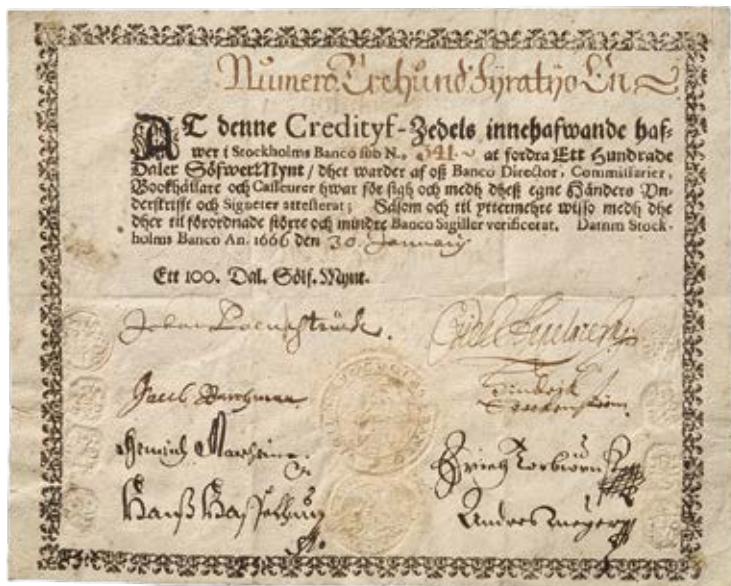 Numero Trehund Fyratijo En
AT denne Credityf-Zedels innehafwande haf-
wer i Stockholms Banco sub N.o 341. at fordra Ett Hundrade
Daler SölfwerMynt / dhet warder af oß Banco Director, Commissarier,
Bookhållare och Casseurer hwar för sigh och medh dheß egne Händers Vn-
derskrifft och Signeter attesterat; Såsom och til yttermehre wisso medh dhe
dher til förordnade större och mindre Banco Sigiller verificerat. Datum Stock-
holms Banco An. 1666 den 30. January
Ett 100. Dal. Sölf. Mynt.
Johan Palmstruch.
Hindrik
Hans
Andres Meyer